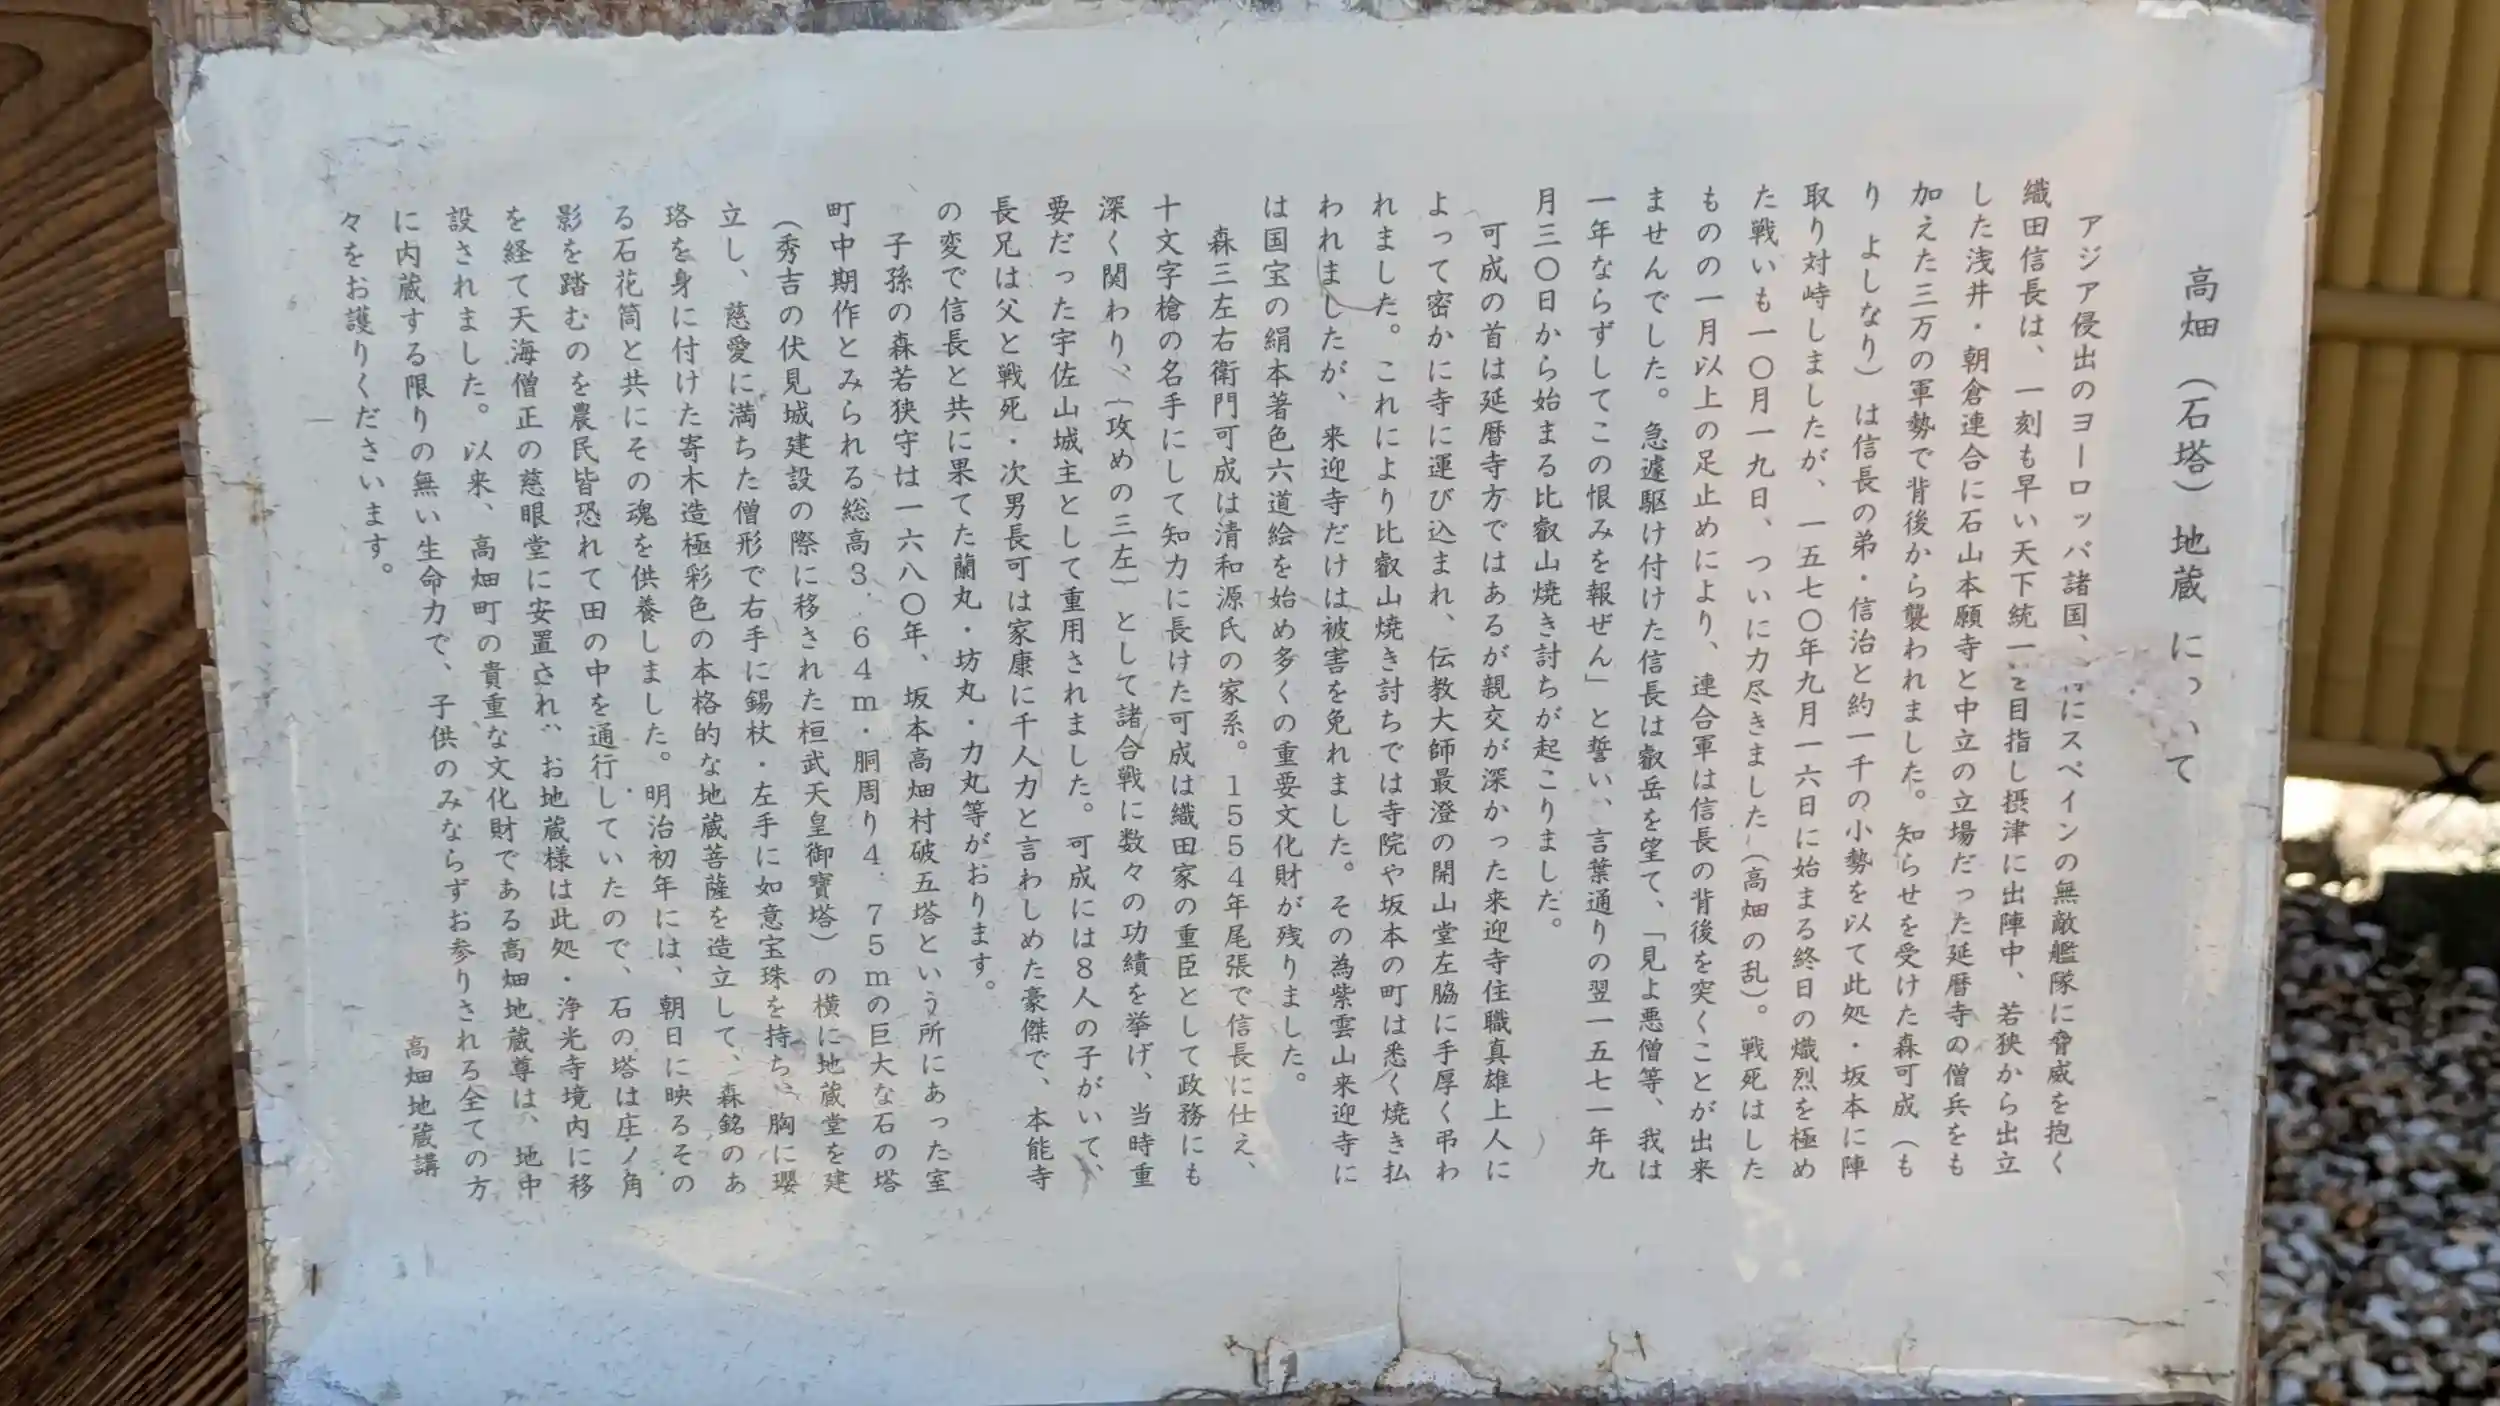 高畑（石塔）地蔵について
アジア侵出のヨーロッパ諸国、にスペインの無敵艦隊に脅威を抱く
織田信長は、一刻も早い天下統一を目指し摂津に出陣中、若狭から出立
した浅井・朝倉連合に石山本願寺と中立の立場だった延暦寺の僧兵をも
加えた三万の軍勢で背後から襲われました。知らせを受けた森可成（も
り よしなり）は信長の弟・信治と約一千の小勢を以て此処・坂本に陣
取り対峙しましたが、一五七〇年九月一六日に始まる終日の熾烈を極め
た戦いも一〇月一九日、ついに力尽きました（高畑の乱）。戦死はした
ものの一月以上の足止めにより、連合軍は信長の背後を突くことが出来
ませんでした。急遽駆け付けた信長は叡岳を望て、「見よ悪僧等、我は
一年ならずしてこの恨みを報ぜん」と誓い、言葉通りの翌一五七一年九
月三〇日から始まる比叡山焼き討ちが起こりました。
可成の首は延暦寺方ではあるが親交が深かった来迎寺住職真雄上人に
よって密かに寺に運び込まれ、伝教大師最澄の開山堂左脇に手厚く弔わ
れました。これにより比叡山焼き討ちでは寺院や坂本の町は悉く焼き払
われましたが、来迎寺だけは被害を免れました。その為紫雲山来迎寺に
は国宝の絹本著色六道絵を始め多くの重要文化財が残りました。
森三左右衛門可成は清和源氏の家系。１５５４年尾張で信長に仕え、
十文字槍の名手にして知力に長けた可成は織田家の重臣として政務にも
深く関わり、〔攻めの三左〕として諸合戦に数々の功績を挙げ、当時重
要だった宇佐山城主として重用されました。可成には８人の子がいて、
長兄は父と戦死・次男長可は家康に千人力と言わしめた豪傑で、本能寺
の変で信長と共に果てた蘭丸・坊丸・力丸等がおります。
子孫の森若狭守は一六八〇年、坂本高畑村破五塔という所にあった室
町中期作とみられる総高３．６４ｍ・胴周り４．７５ｍの巨大な石の塔
（秀吉の伏見城建設の際に移された桓武天皇御寶塔）の横に地蔵堂を建
立し、慈愛に満ちた僧形で右手に錫杖・左手に如意宝珠を持ち、胸に瓔
珞を身に付けた寄木造極彩色の本格的な地蔵菩薩を造立して、森銘のあ
る石花筒と共にその魂を供養しました。明治初年には、朝日に映るその
影を踏むのを農民皆恐れて田の中を通行していたので、石の塔は庄ノ角
を経て天海僧正の慈眼堂に安置され、お地蔵様は此処・浄光寺境内に移
設されました。以来、高畑町の貴重な文化財である高畑地蔵尊は、地中
に内蔵する限りの無い生命力で、子供のみならずお参りされる全ての方
々をお護りくださいます。
高畑地蔵講